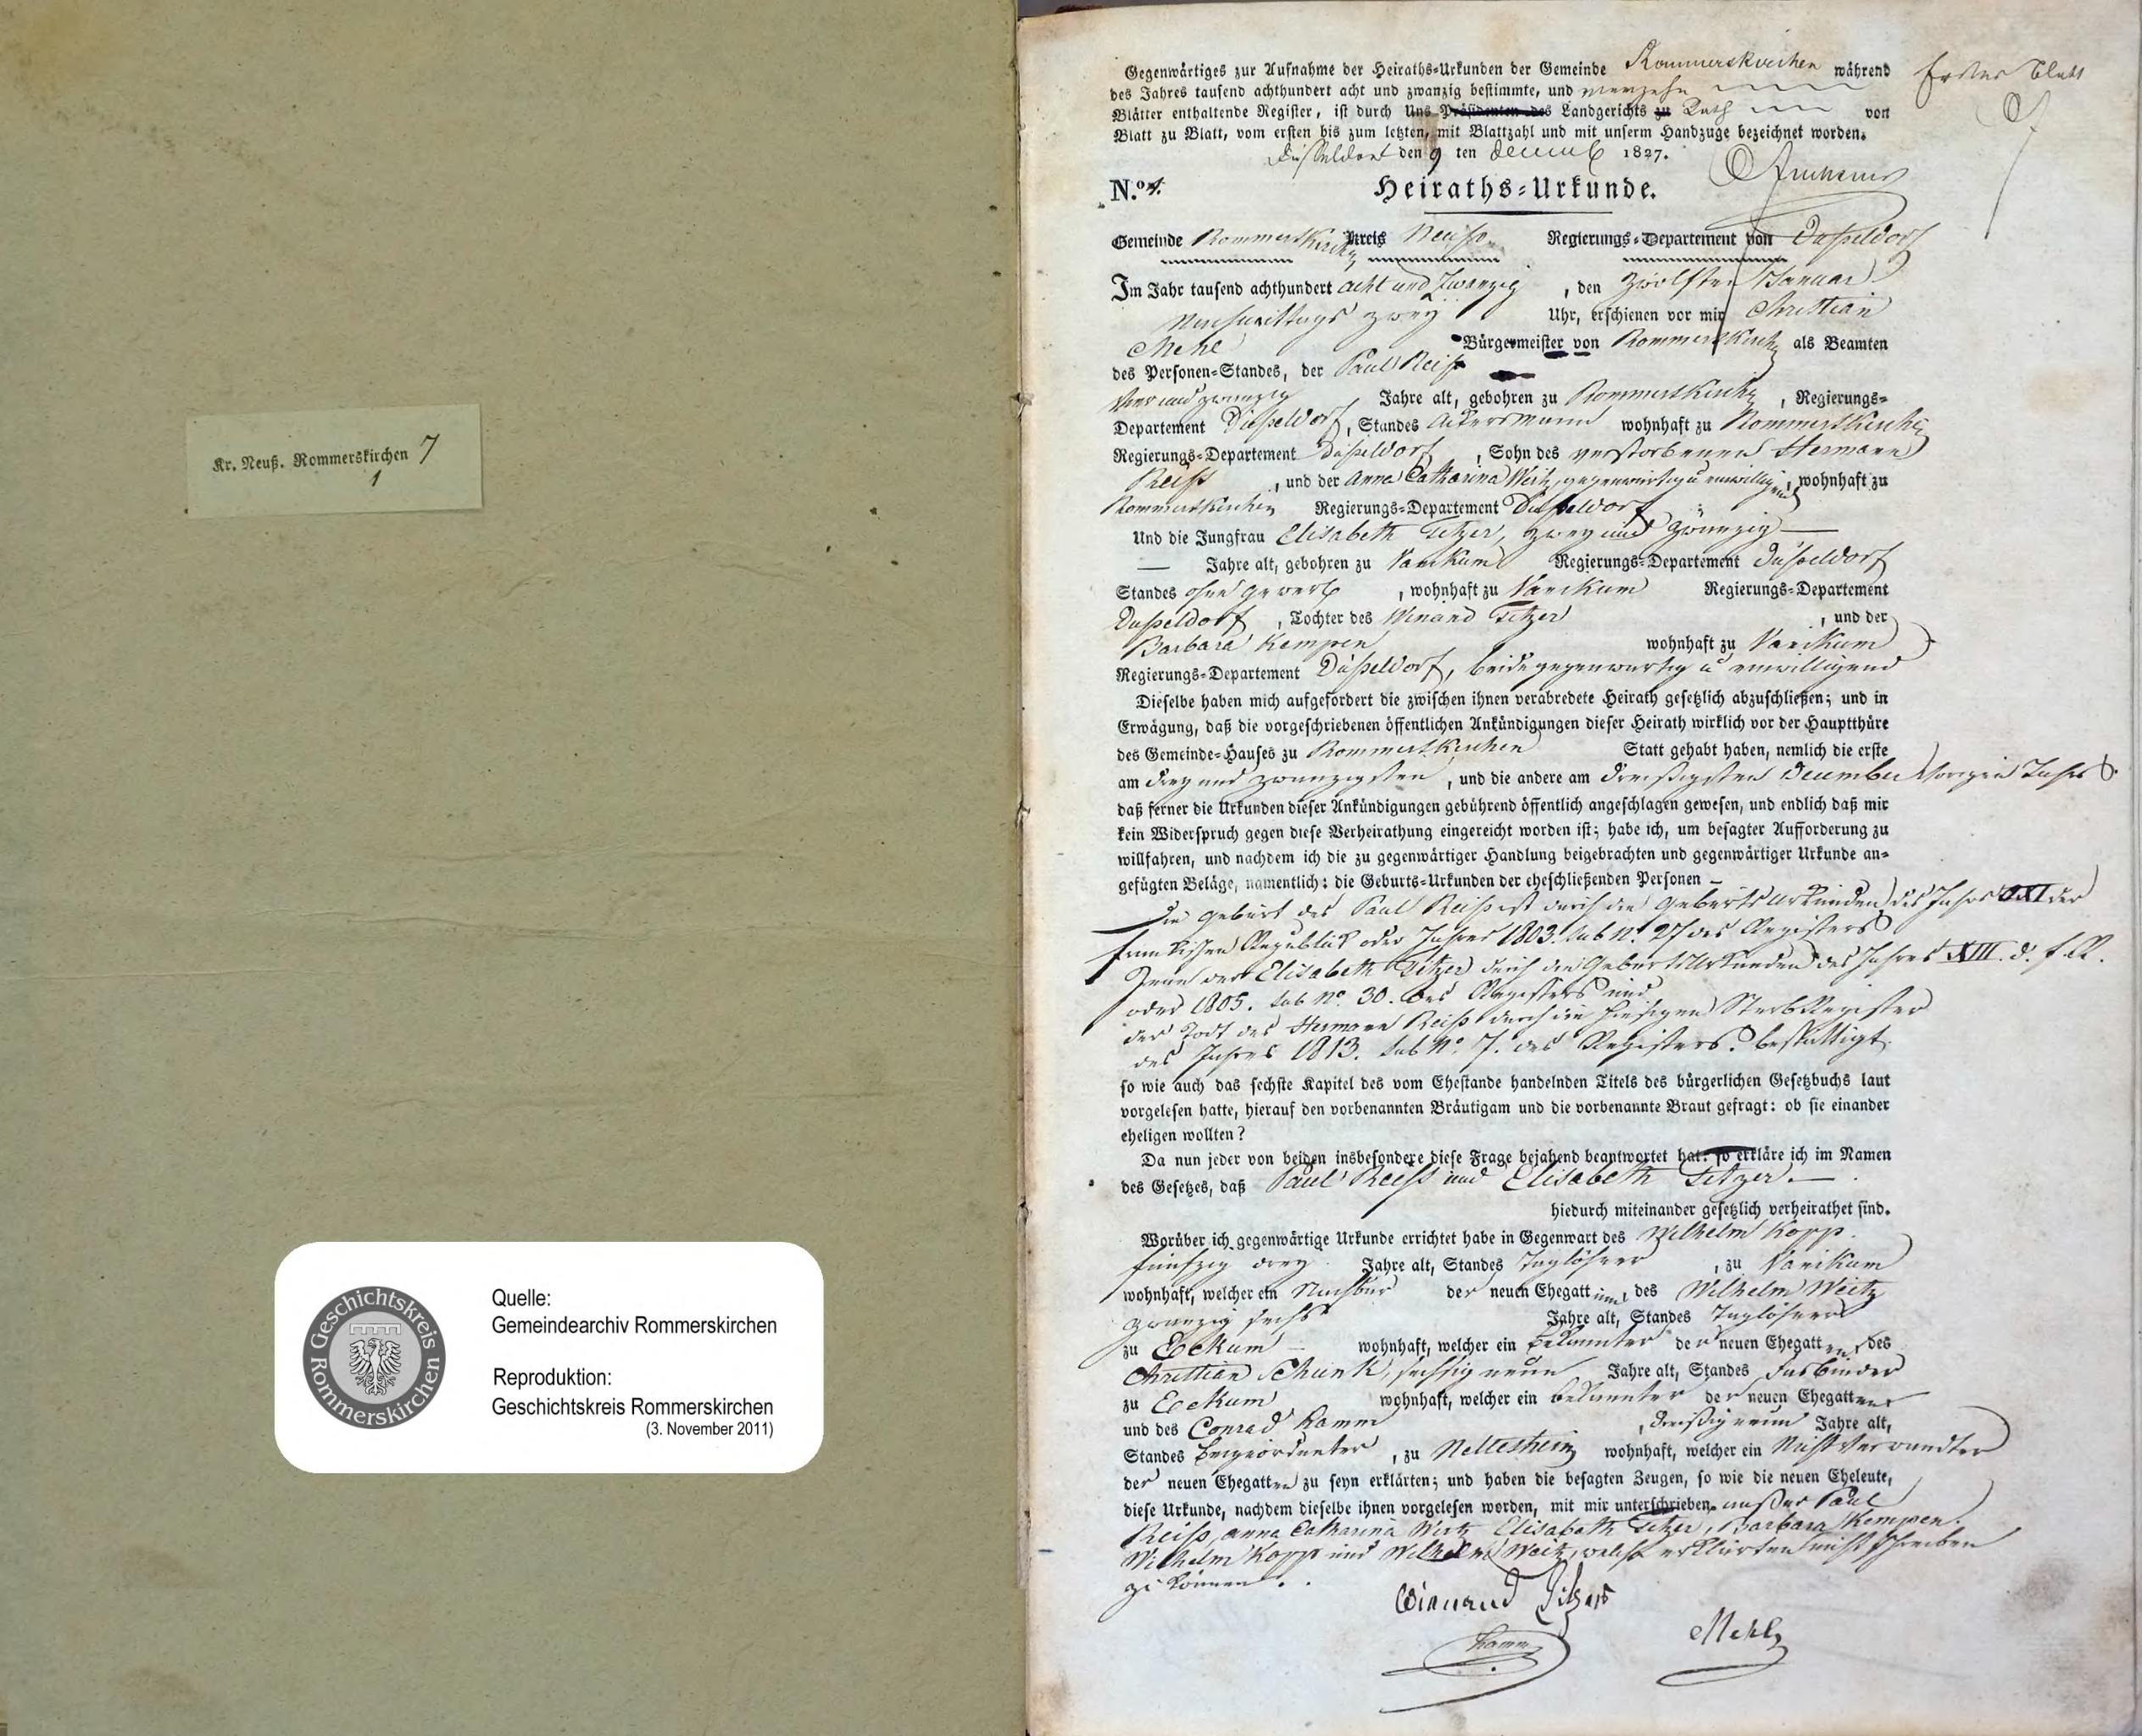 Kr. Neuß. Rommerskirchen 7
1
Quelle:
Gemeindearchiv Rommerskirchen
Reproduktion:
Geschichtskreis Rommerskirchen
(3. November 2011)
Geschichtskreis Rommerskirchen
Gegenwärtiges zur Aufnahme der Heiraths=Urkunden der Gemeinde Rommerskirchen während
Erstes Blatt
des Jahres tausend achthundert acht und zwanzig bestimmte, und vierzehn
Blätter enthaltende Register, ist durch Uns Präsidenten des Landgerichts zu Rath von
Blatt zu Blatt, vom ersten bis zum letzten, mit Blattzahl und mit unserm Handzuge bezeichnet worden.
Düsseldorf den 9 ten 1827.
N.º 1. Heiraths=Urkunde.
Gemeinde Rommerskirchen Kreis Neuß Regierungs=Departement von Düsseldorf
Im Jahr tausend achthundert acht und zwanzig , den zwölften Januar
Nachmittags zwey Uhr, erschienen vor mir Christian
Mehl Bürgermeister von Rommerskirchen als Beamten
des Personen=Standes, der Paul Reiß
vier und zwanzig Jahre alt, gebohren zu Rommerskirchen , Regierungs=
Departement Düßeldorf, Standes Ackersmann wohnhaft zu Rommerskirchen
Regierungs=Departement Düßeldorf , Sohn des verstorbenen Hermann
Reiß , und der Anna Catharina Wirtz, gegenwärtig u einwilligend, wohnhaft zu
Rommerskirchen Regierungs=Departement Düßeldorf
Und die Jungfrau Elisabeth Titzer, zwey und zwanzig
Jahre alt, gebohren zu Vanikum Regierungs=Departement Düßeldorf
Standes ohne gewerb , wohnhaft zu Vanikum Regierungs=Departement
Düßeldorf , Tochter des Winand Titzer , und der
Barbara Kempen wohnhaft zu Vanikum
Regierungs=Departement Düßeldorf, beide gegenwärtig u einwilligend
Dieselbe haben mich aufgefordert die zwischen ihnen verabredete Heirath gesetzlich abzuschließen; und in
Erwägung, daß die vorgeschriebenen öffentlichen Ankündigungen dieser Heirath wirklich vor der Hauptthüre
des Gemeinde=Hauses zu Rommerskirchen Statt gehabt haben, nemlich die erste
am drey und zwanzigsten , und die andere am dreißigsten December vorigen Jahrs
daß ferner die Urkunden dieser Ankündigungen gebührend öffentlich angeschlagen gewesen, und endlich daß mir
kein Widerspruch gegen diese Verheirathung eingereicht worden ist; habe ich, um besagter Aufforderung zu
willfahren, und nachdem ich die zu gegenwärtiger Handlung beigebrachten und gegenwärtiger Urkunde an=
gefügten Beläge, namentlich: die Geburts=Urkunden der eheschließenden Personen –
Die Geburt des Paul Reiß ist durch die Geburts Urkunden des Jahrs XI der
fränkischen Republick oder Jahres 1803. sub Nº 27 des Registers
Jene der Elisabeth Titzer durch die Geburts Urkunden des Jahres XIII. d. f. R.
oder 1805. sub Nº. 30. des Registers und
der Todt des Hermann Reiß durch die hiesigen Sterb Register
des Jahres 1813. sub Nº. 7. des Registers bestättigt
so wie auch das sechste Kapitel des vom Ehestande handelnden Titels des bürgerlichen Gesetzbuchs laut
vorgelesen hatte, hierauf den vorbenannten Bräutigam und die vorbenannte Braut gefragt: ob sie einander
eheligen wollten?
Da nun jeder von beiden insbesondere diese Frage bejahend beantwortet hat: so erkläre ich im Namen
des Gesetzes, daß Paul Reiß und Elisabeth Titzer.
hiedurch miteinander gesetzlich verheirathet sind.
Worüber ich gegenwärtige Urkunde errichtet habe in Gegenwart des Wilhelm Kopp
fünfzig drey Jahre alt, Standes Taglöhner , zu Vanikum
wohnhaft, welcher ein Nachbar der neuen Ehegattinn, des Wilhelm Weitz
zwanzig sechs Jahre alt, Standes Taglöhner
zu Eckum wohnhaft, welcher ein bekannter der neuen Ehegatten, des
Christian Schunk, sechzig neun Jahre alt, Standes Fasbinder
zu Eckum wohnhaft, welcher ein bekannter der neuen Ehegatten
und des Conrad Hamm , dreißig neun Jahre alt,
Standes beigeordneter , zu Nettesheim wohnhaft, welcher ein Nicht Verwandter
der neuen Ehegatten zu seyn erklärten; und haben die besagten Zeugen, so wie die neuen Eheleute,
diese Urkunde, nachdem dieselbe ihnen vorgelesen worden, mit mir unterschrieben. außer Paul
Reiß, anna Catharina Wirtz Elisabeth Titzer, Barbara Kempen.
Wilhelm Kopp und Wilhelm Weitz, welche erklärten nicht schreiben
zu können.
Winnand Titzer
Hamm Mehl